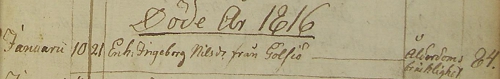 Döde År 1816
Januarii 10 21 Enk. Ingeborg Nilsdr från Golsiö — Ålderdoms 84.
bräcklighet